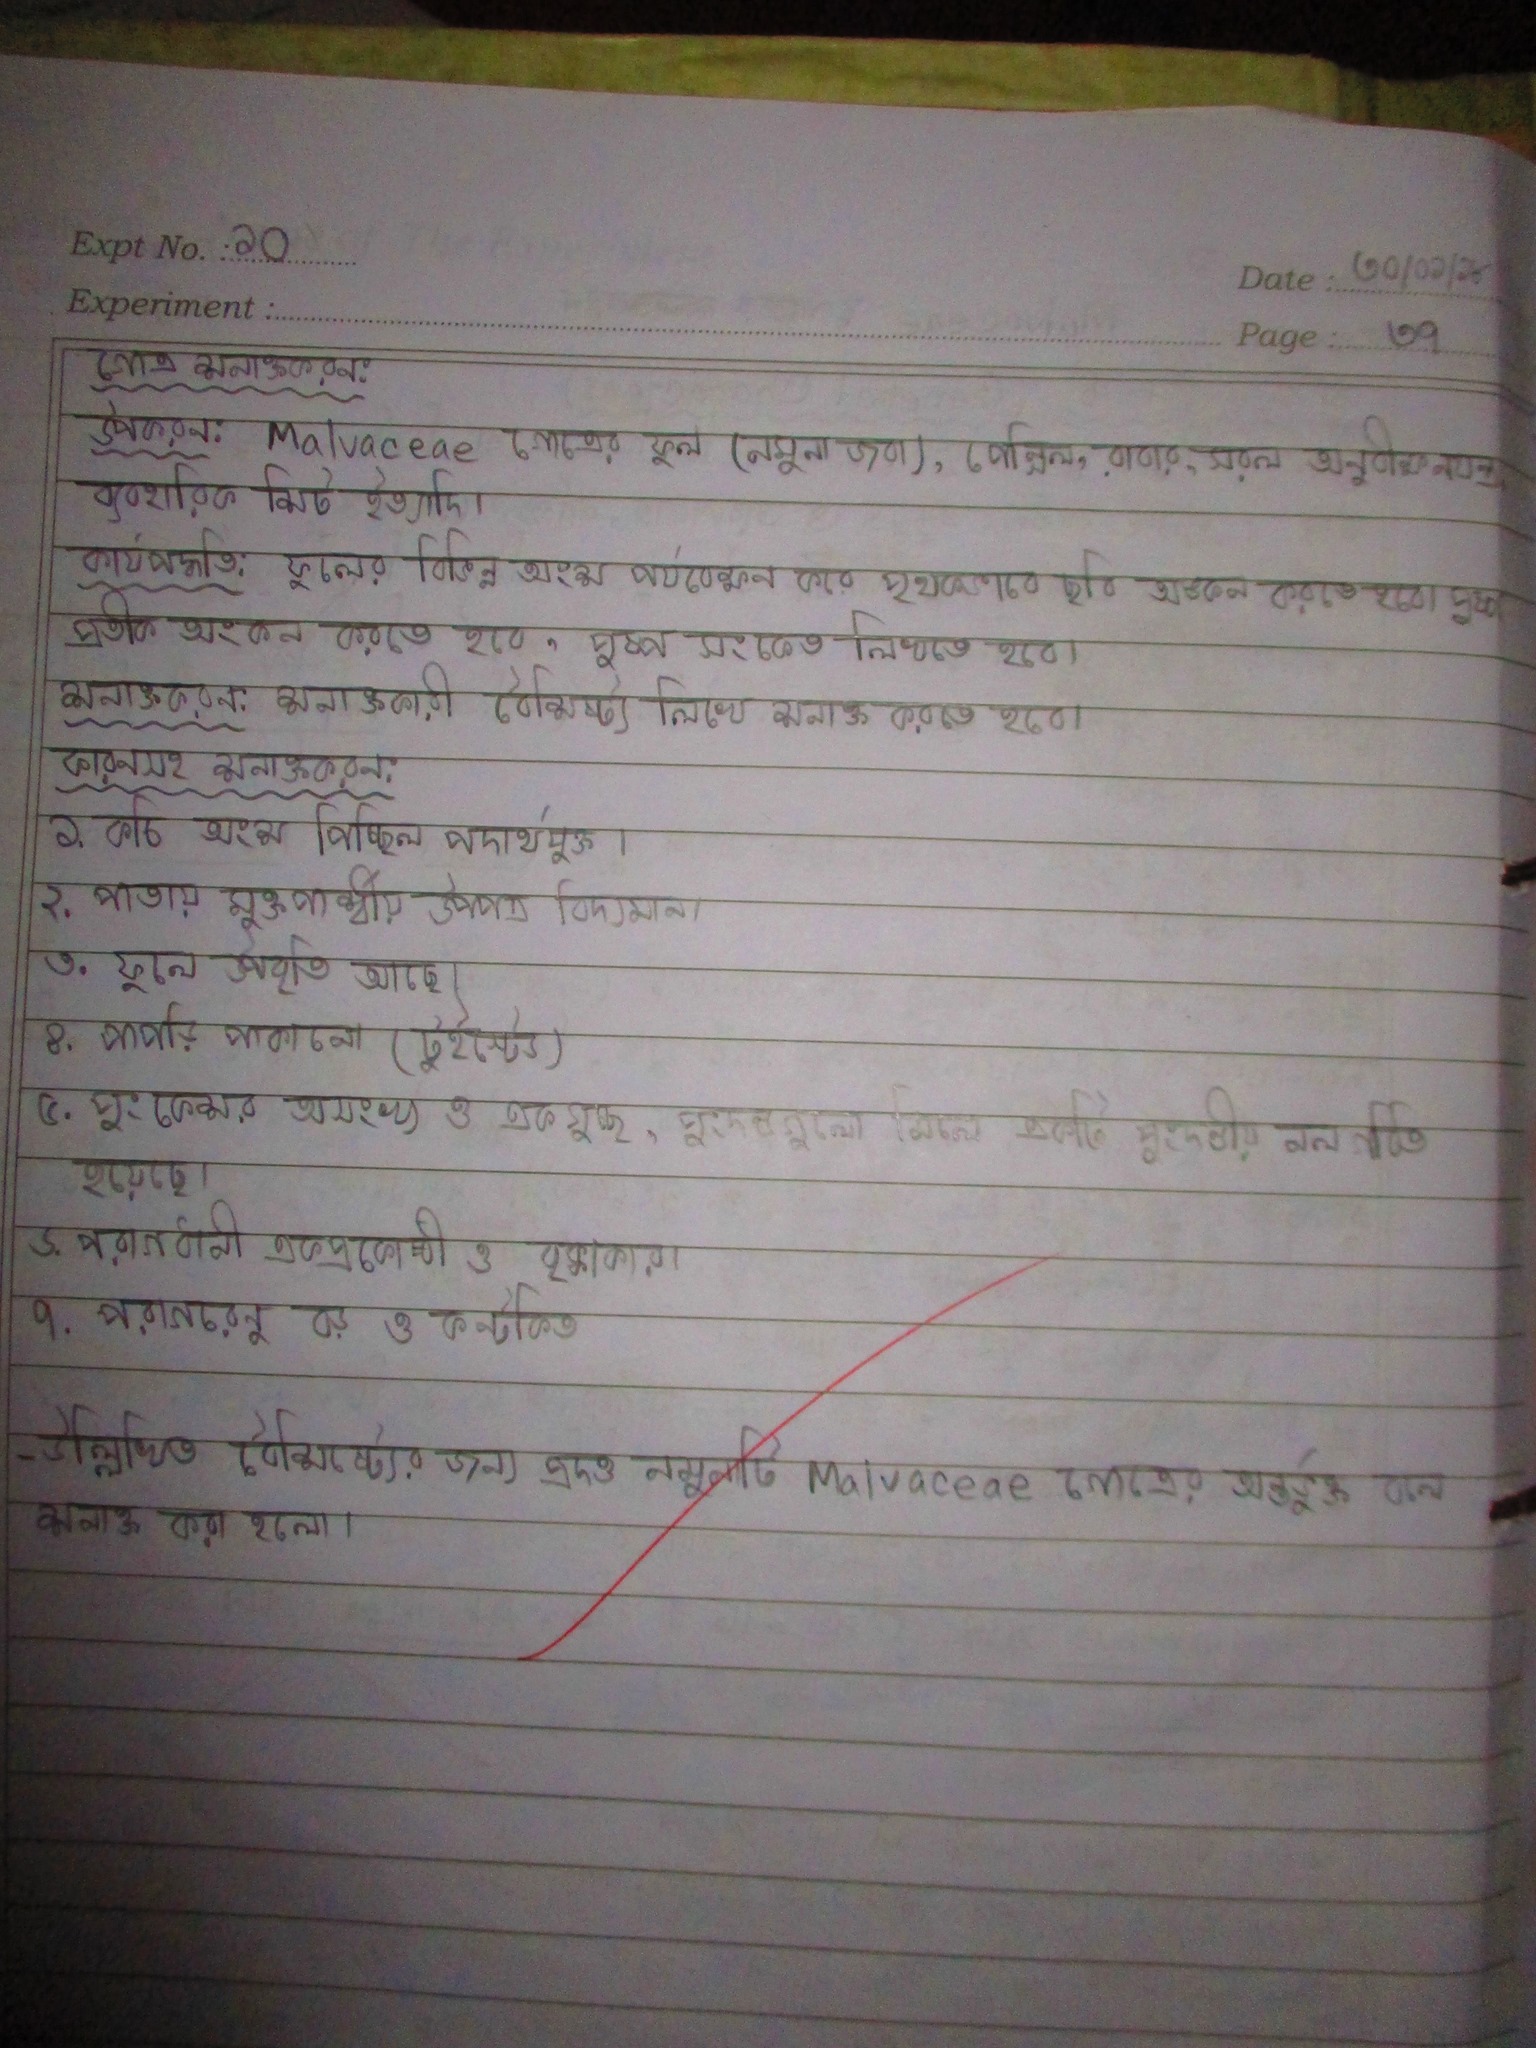 Expt No. : ১০
Date : ৩০/০১/২৫
Experiment :
Page : ৩৭
গোত্র শনাক্তকরন:
উপকরন: Malvaceae গোত্রের ফুল (নমুনা জবা), পেন্সিল, রাবার, সরল অনুবীক্ষনযন্ত্র
ব্যবহারিক সিট ইত্যাদি।
কার্যপদ্ধতি: ফুলের বিভিন্ন অংশ পর্যবেক্ষন করে পৃথকভাবে ছবি অঙকন করতে হবে। পুষ্প
প্রতীক অংকন করতে হবে, পুষ্প সংকেত লিখতে হবে।
শনাক্তকরন: শনাক্তকারী বৈশিষ্ট্য লিখে শনাক্ত করতে হবে।
কারনসহ শনাক্তকরন:
১. কচি অংশ পিচ্ছিল পদার্থযুক্ত।
২. পাতায় মুক্তপার্শ্বীয় উপপত্র বিদ্যমান।
৩. ফুলে উপবৃতি আছে।
৪. পাপড়ি পাকানো (টুইস্টেড)
৫. পুংকেশর অসংখ্য ও একগুচ্ছ, পুংদন্ডগুলো মিলে একটি পুংদন্ডীয় নল গঠিত
হয়েছে।
৬. পরাগধানী একপ্রকোষ্ঠী ও বৃক্কাকার।
৭. পরাগরেনু বড় ও কন্টকিত
-উল্লিখিত বৈশিষ্ট্যের জন্য প্রদত্ত নমুনাটি Malvaceae গোত্রের অন্তর্ভুক্ত বলে
শনাক্ত করা হলো।